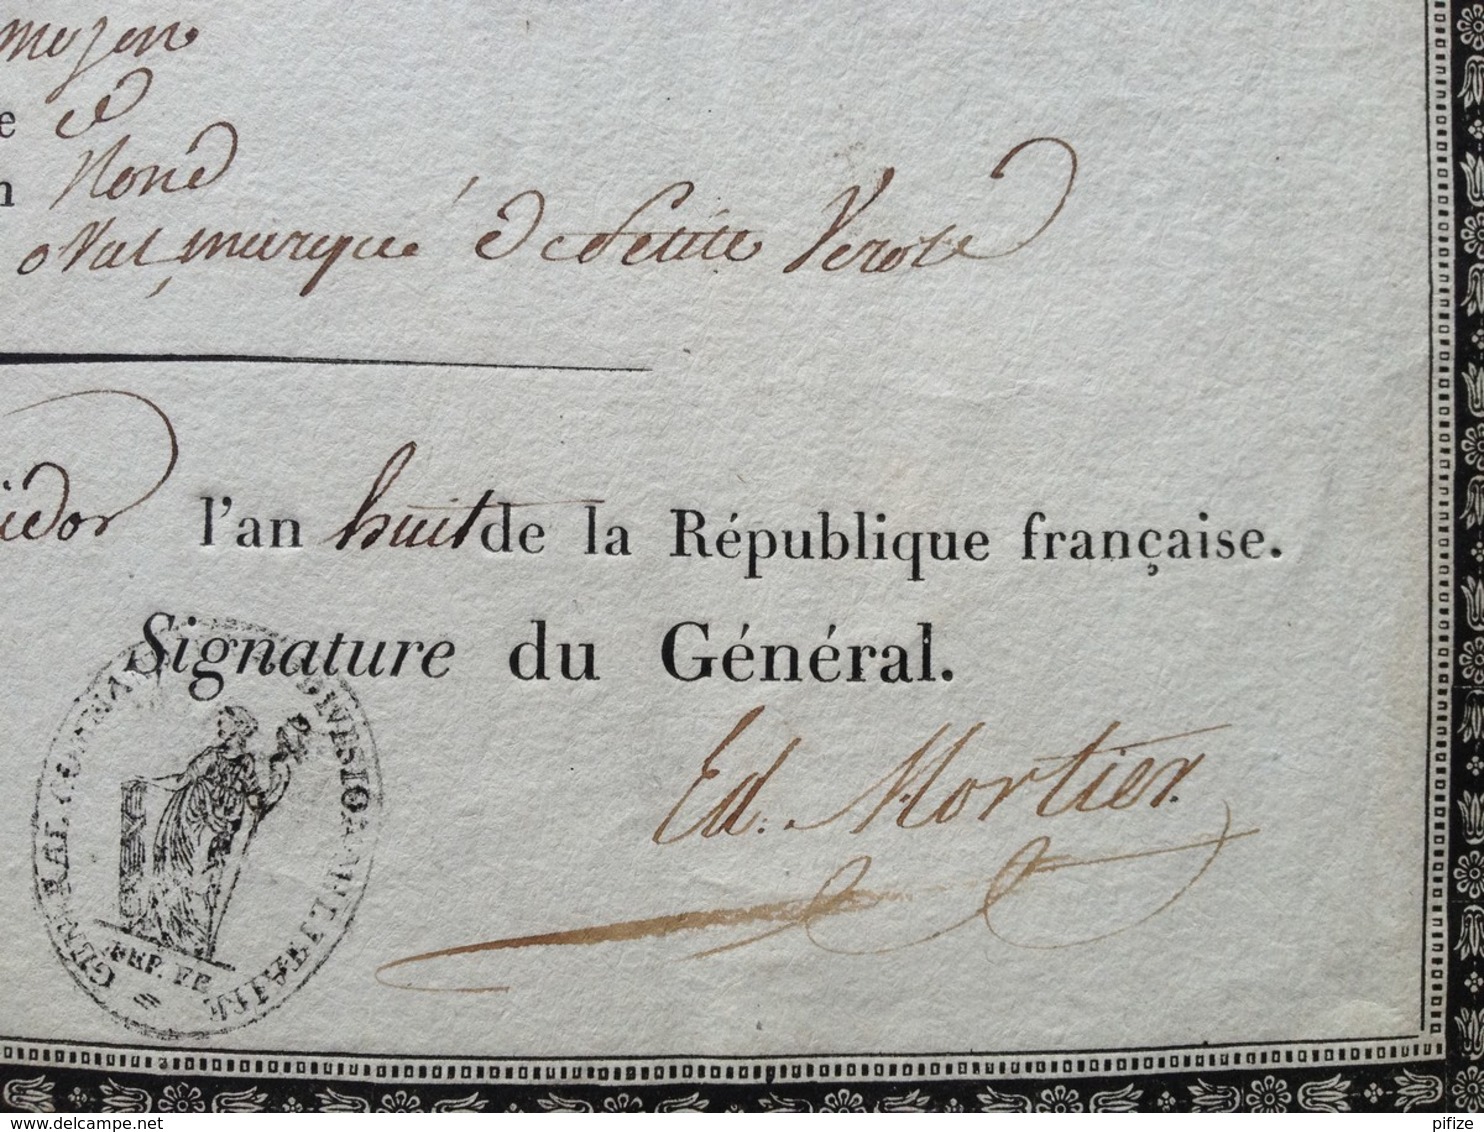 moyen
e
n rond
oval, marqué de Petite Verole
idor l'an huit de la République française.
Signature du Général.
Ed. Mortier
GÉNÉRAL COMMAN DIVISION MILITAIRE
REP. FR
www.delcampe.net
pifize